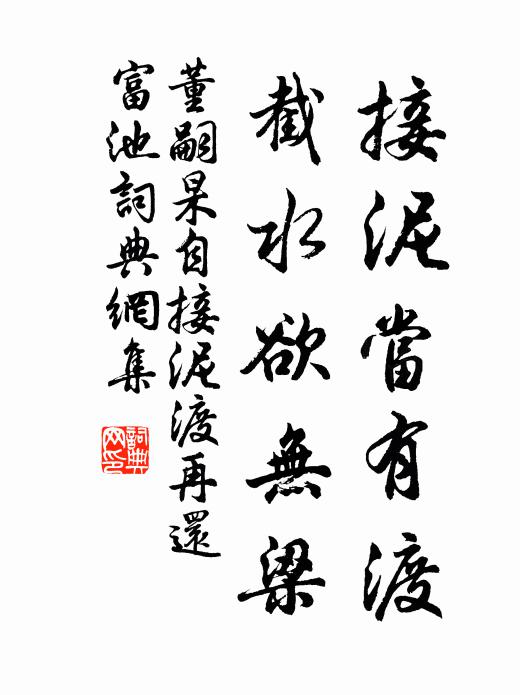 接泥當有渡
截水欲無梁
董嗣杲自接泥渡再還
富池詞典網集
詞典
网印